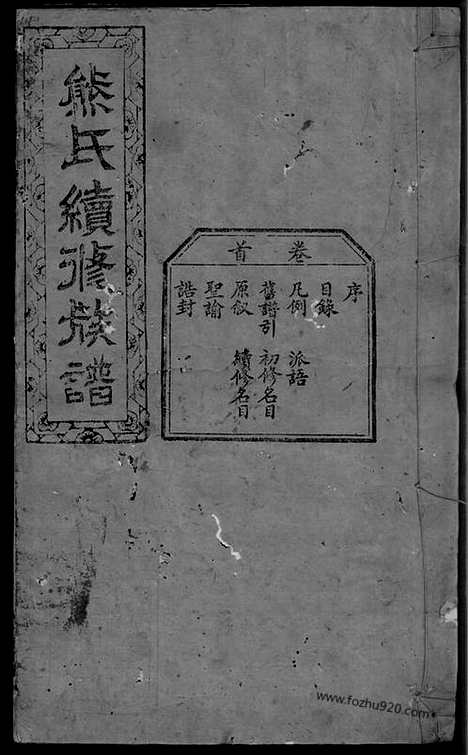 熊氏續修族譜
卷首
序
目錄
凡例 派語
舊譜引 初修名目
原叙 續修名目
聖諭
誥封
www.fozhu920.com